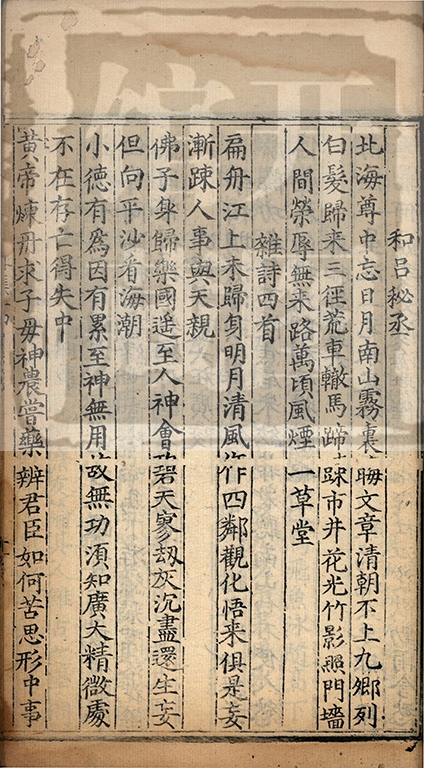 和呂秘丞
北海尊中忘日月南山霧裏晦文章清朝不上九卿列
白髮歸来三徑荒車轍馬蹄踈市井花光竹影照門墻
人間榮辱無来路萬頃風煙一草堂
雜詩四首
扁舟江上未歸身明月清風作四鄰觀化悟来俱是妄
漸踈人事與天親
佛子身歸樂國遥至人神會碧天寥劫灰沉盡還生妄
但向平沙看海潮
小德有為因有累至神無用故無功須知廣大精微處
不在存亡得失中
黄帝煉丹求子母神農嘗藥辨君臣如何苦思形中事